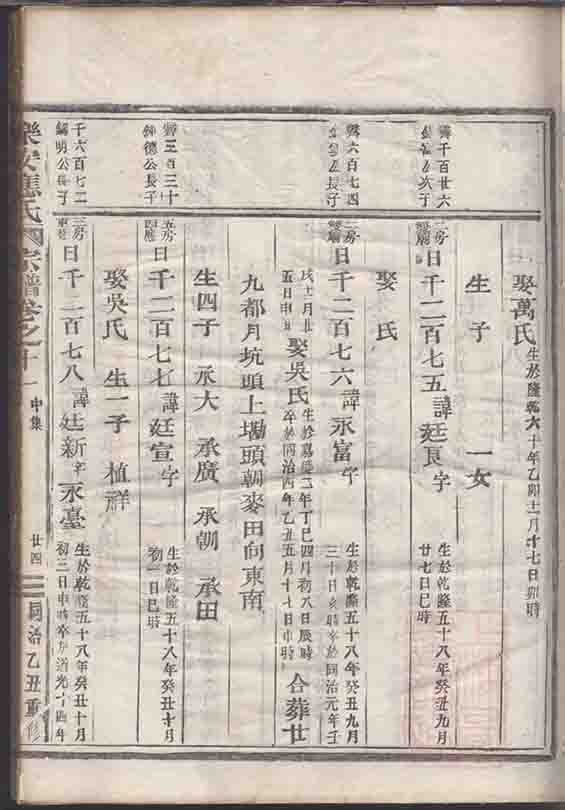 娶萬氏 生於隆乾六十年乙卯十二月十七日卯時
生 子 一女
千百廿六
次子
二房
日千二百七五諱廷良字 生於乾隆五十八年癸丑九月
廿七日巳時
娶 氏
六百七四
長子
三房
日千二百七六諱永富字 生於乾隆五十八年癸丑九月
三十日亥時卒於同治元年壬
戌十一月廿
五日申時 娶吳氏 生於嘉慶二年丁巳四月初八日辰時
卒於同治四年乙丑五月十七日申時 合葬廿
九都月坑頭上塘頭朝麥田向東南
生四子 承大 承廣 承朝 承田
三百三十
鍾德公長子
五房
日千二百七七諱廷宣字 生於乾隆五十八年癸丑十月
初一日巳時
娶吳氏 生一子 植祥
千六百七二
明公長子
三房
日千二百七八諱廷新字永臺 生於乾隆五十八年癸丑十月
初三日申時卒於道光十四年
樂安應氏 宗譜卷之十一 中集 廿四 同治乙丑重修